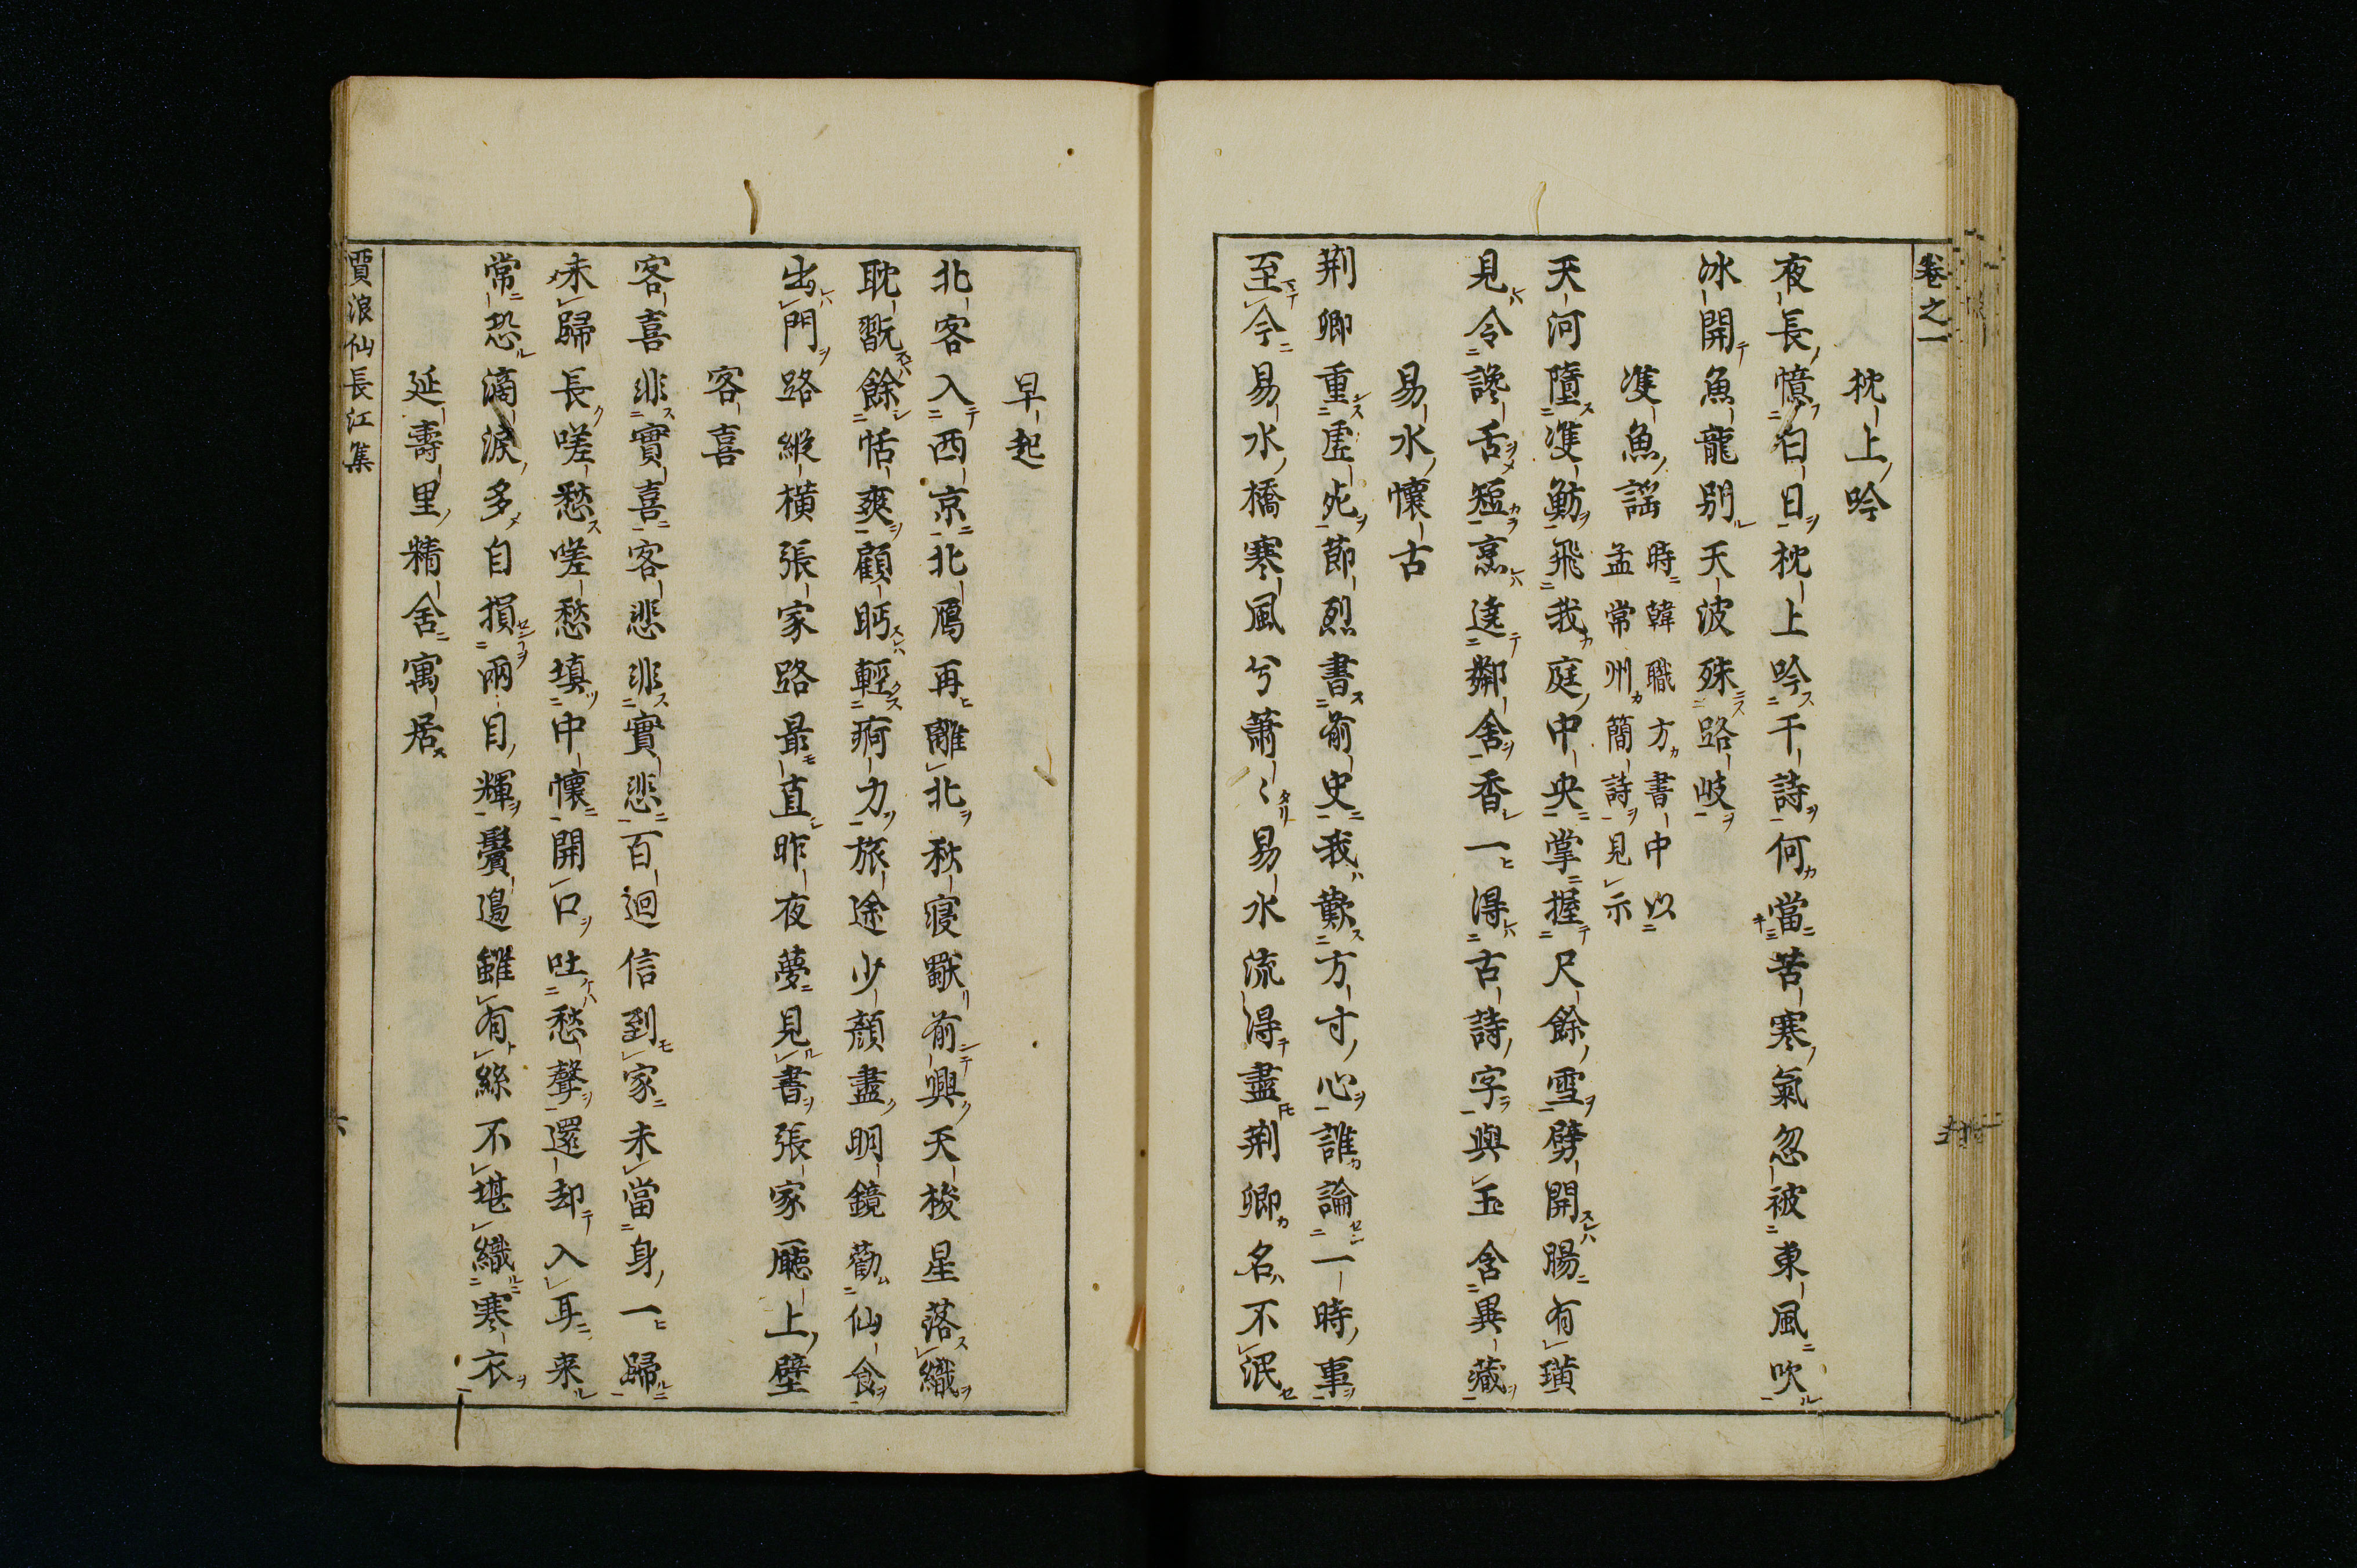 卷之一
枕上吟
夜長憶白日枕上吟千詩何當苦寒氣忽被東風吹
冰開魚龍別天波殊路岐
雙魚謡
時韓職方書中以
孟常州簡詩見示
天河墮雙魴飛我庭中央掌握尺餘雪劈開腸有璜
見令饞舌短烹遶鄰舍香一得古詩字與玉含異藏
易水懷古
荆卿重虛死節烈書前史我歎方寸心誰論一時事
至今易水橋寒風兮蕭〻易水流得盡荆卿名不泯
早起
北客入西京北鴈再離北秋寢獨前興天梭星落織
耽翫餘恬爽顧眄輕痾力旅途少顏盡明鏡勸仙食
出門路縱橫張家路最直昨夜夢見書張家廳上壁
客喜
客喜非實喜客悲非實悲百迴信到家未當身一歸
未歸長嗟愁嗟愁填中懷開口吐愁聲還却入耳来
常恐滴淚多自損兩目輝鬢邊雖有絲不堪織寒衣
延壽里精舍寓居
賈浪仙長江集
六